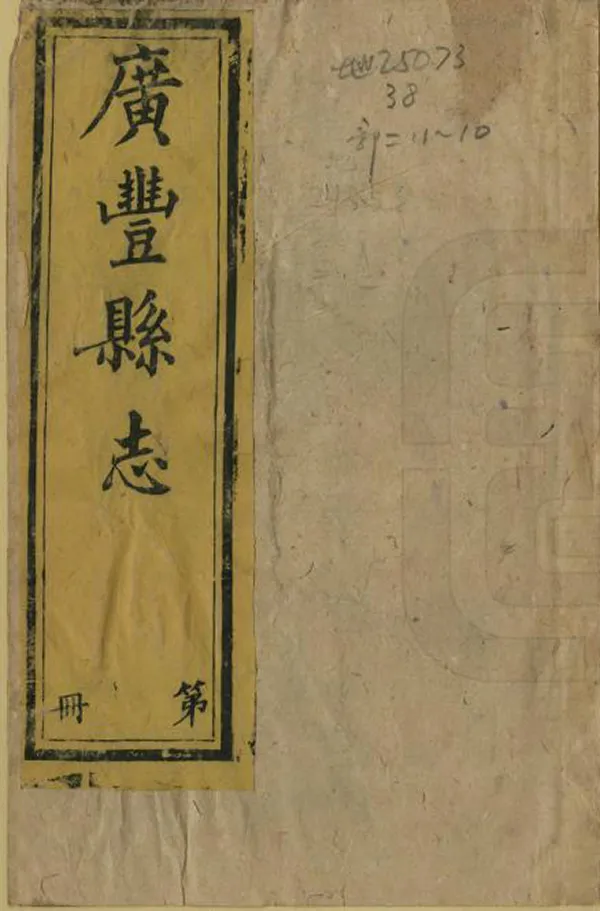 廣豐縣志
第 冊
地25073
38
11~10